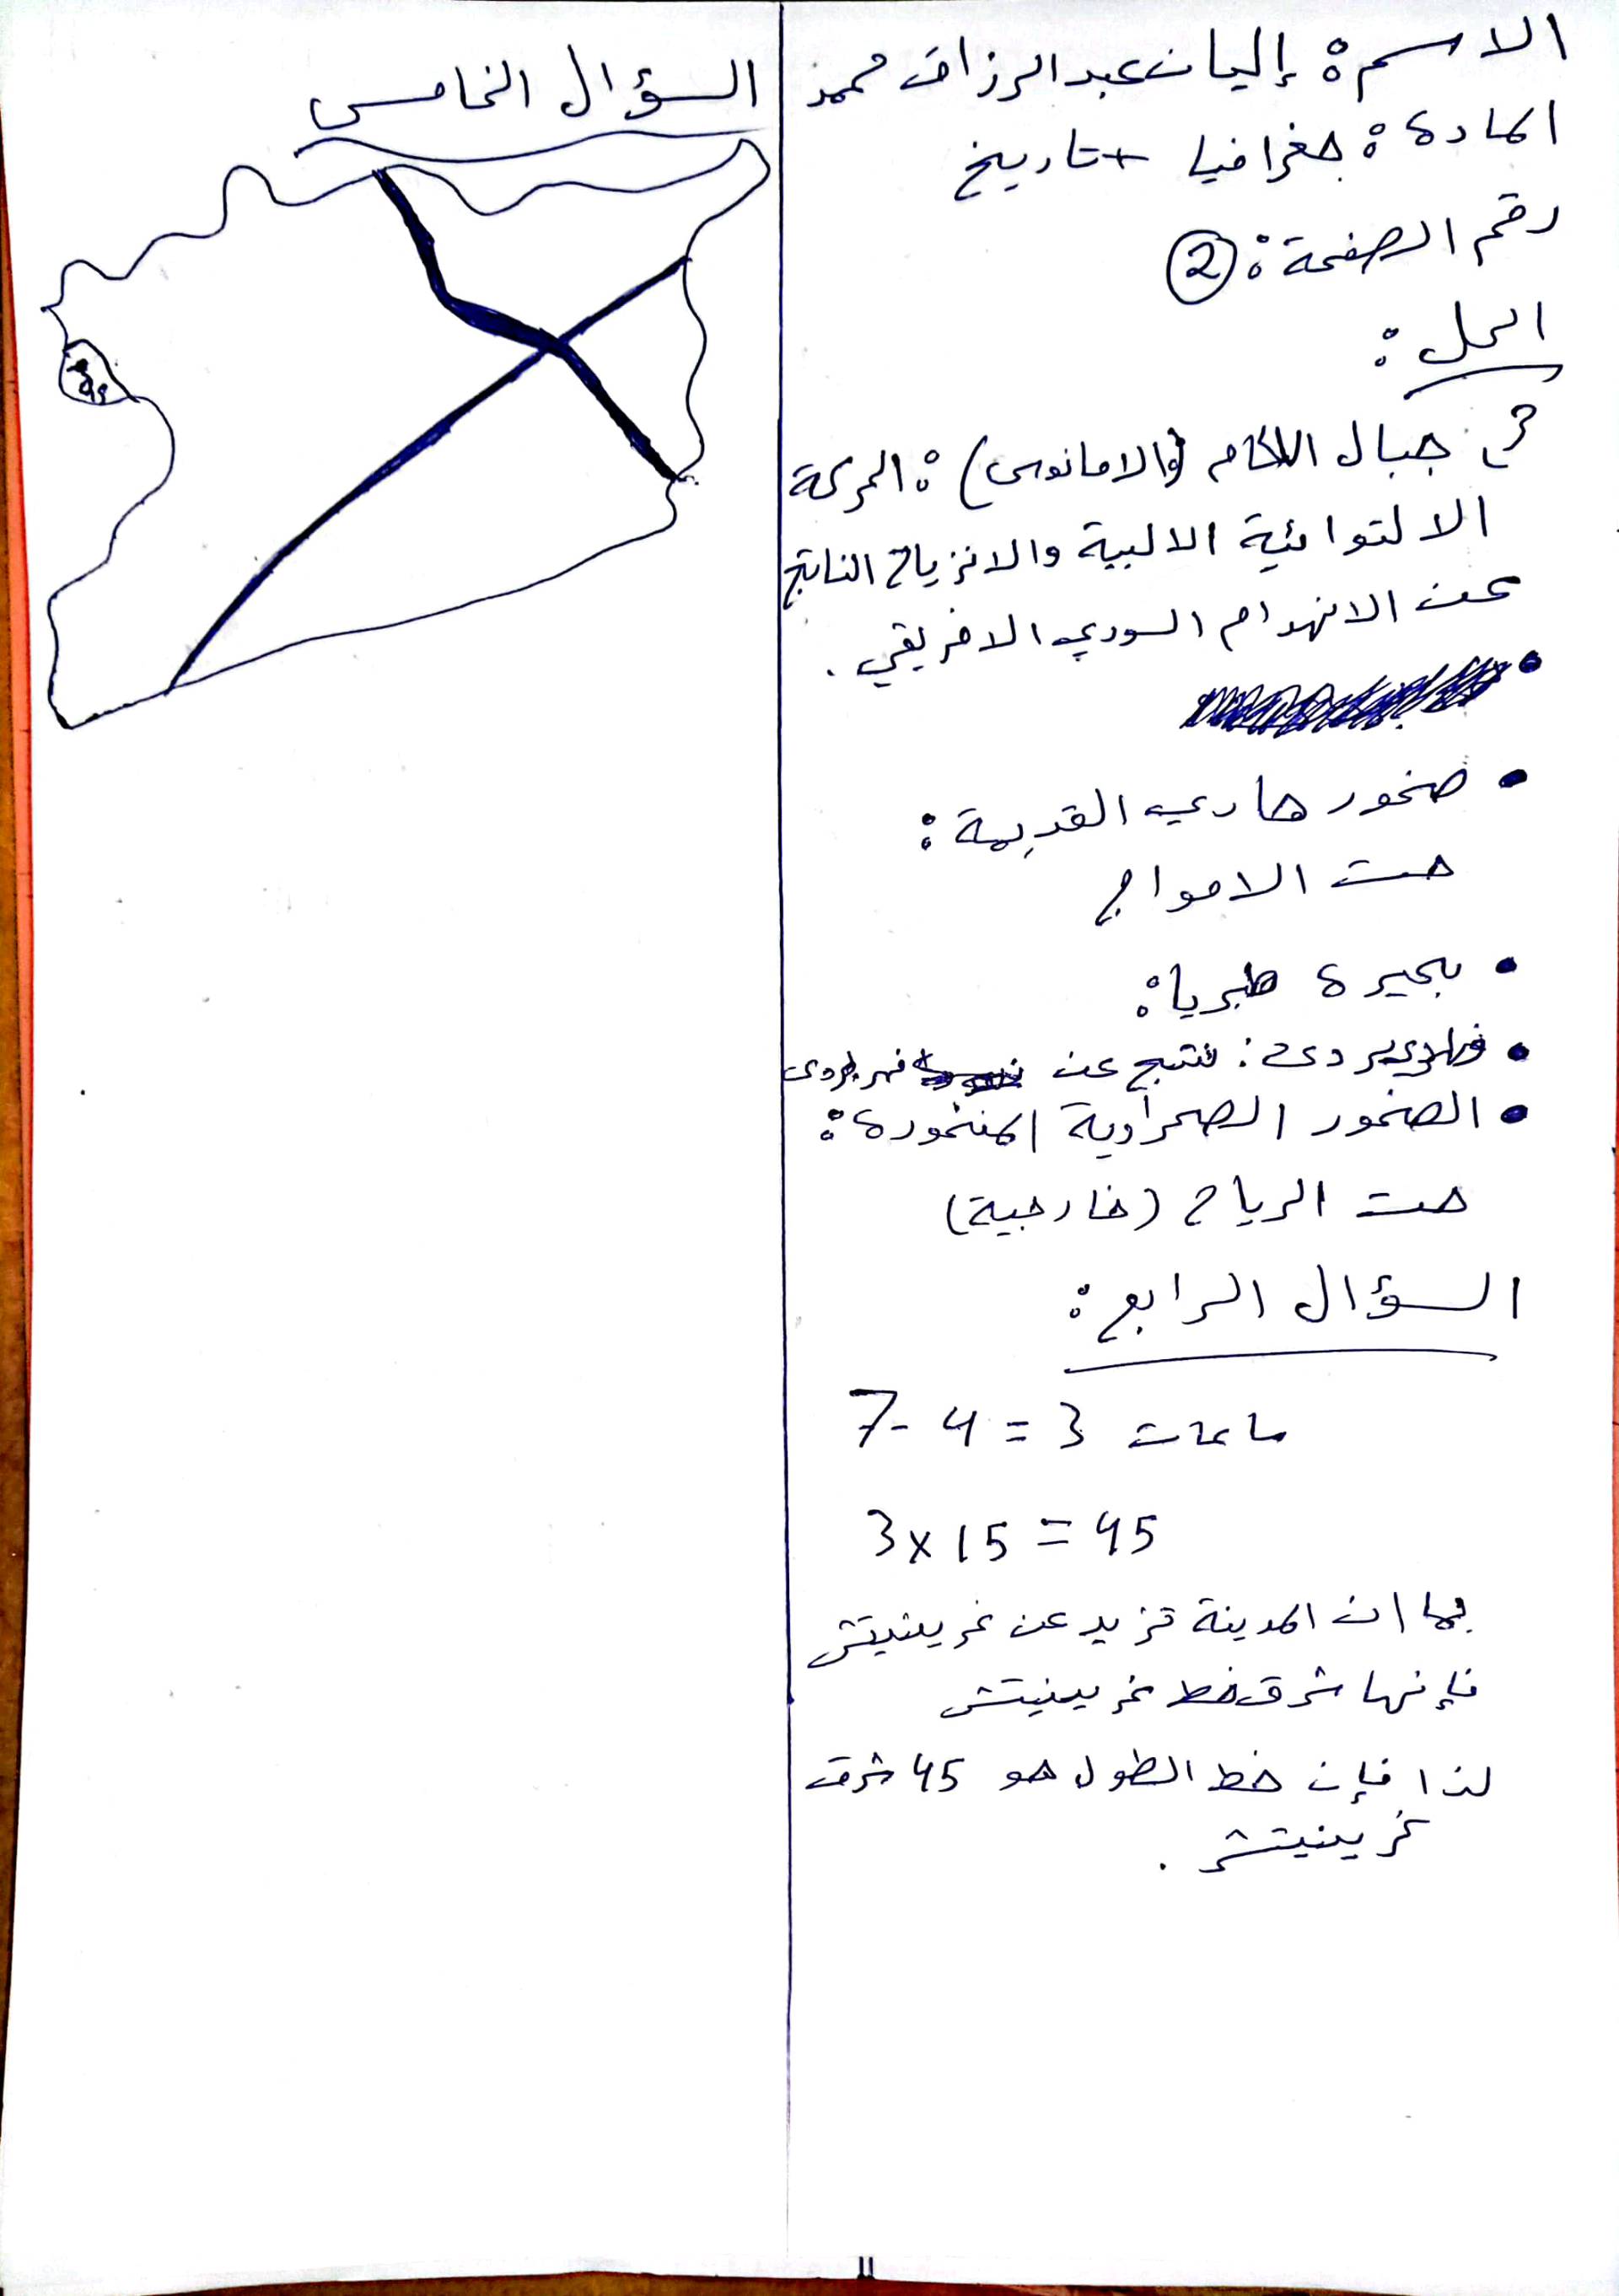 الاسم: إليان عبد الرزاق محمد
المادة: جغرافيا + تاريخ
رقم الصفحة: 2
الحل:
جبال اللكام (والامانوس): الحركة
الالتوائية الالبية والانزياح الناتج
عن الانهدام السوري الافريقي.
• صخور هاري القديمة:
حت الامواج
• بحيرة طبريا:
• بردى: نتج عن نهر بردى
• الصخور الصحراوية المنخورة:
حت الرياح (خارجية)
السؤال الرابع:
7 - 4 = 3 ساعات
3 x 15 = 45
بما ان المدينة تزيد عن غرينيتش
فإنها شرق خط غرينيتش
لذا فإن خط الطول هو 45 شرق
غرينيتش.
السؤال الخامس